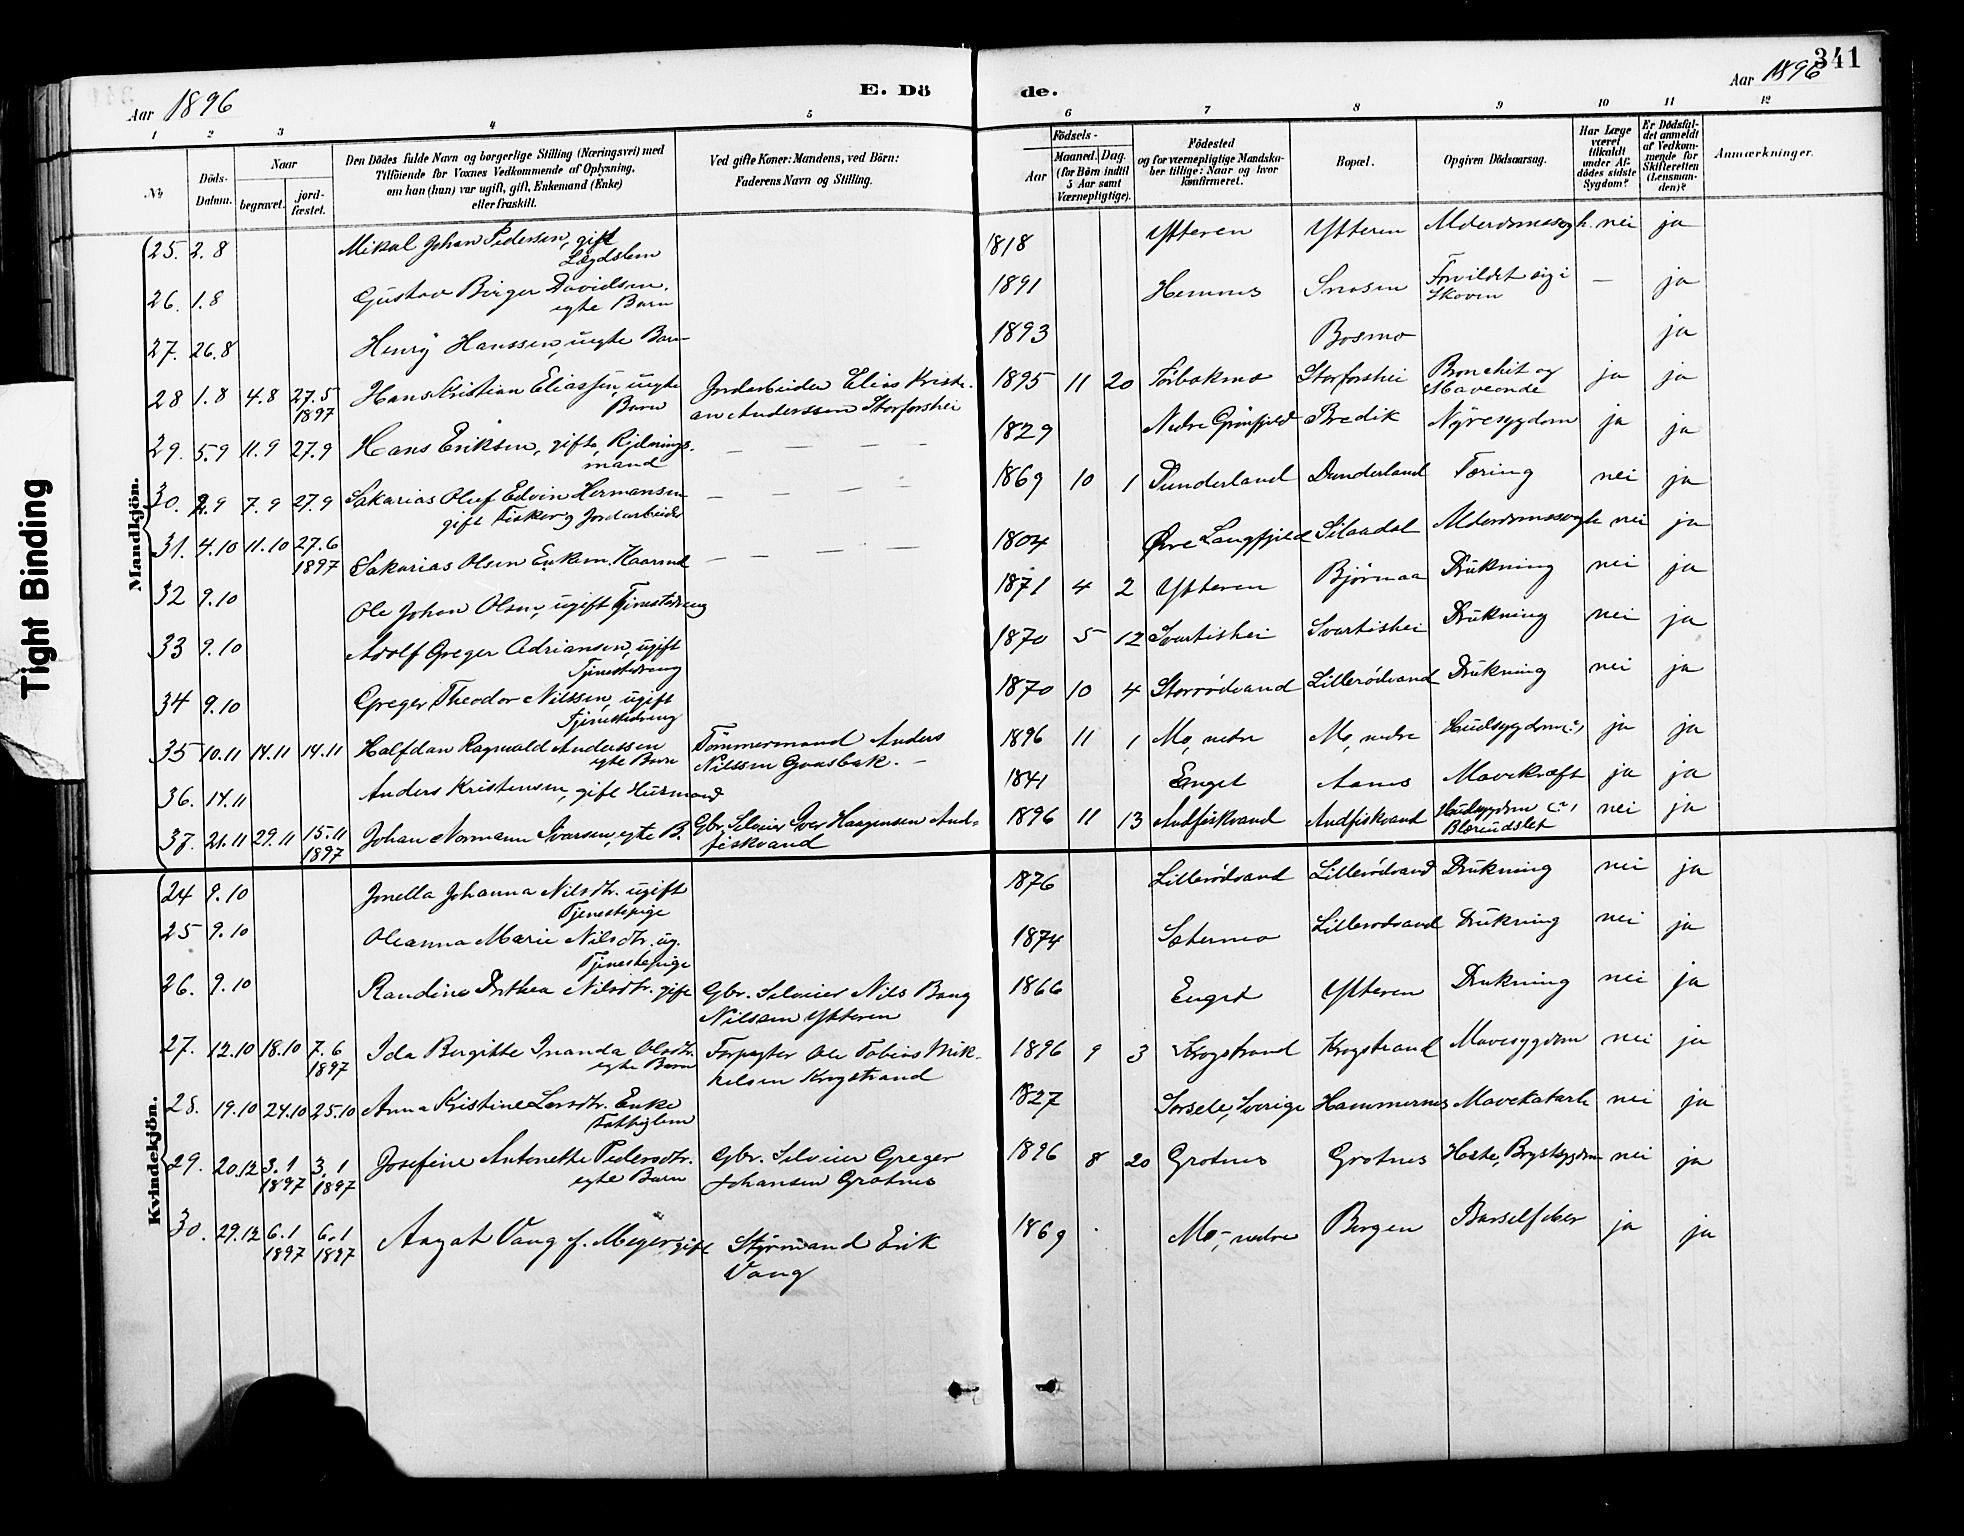 341
Aar 1896
E. Dö
de.
Aar 1896
1 2 3 4 5 6 7 8 9 10 11 12
No
Döds-Datum.
Naar
begravet.
jord-fæstet.
Den Dödes fulde Navn og borgerlige Stilling (Næringsvei) med
Tilföiende for Voxnes Vedkommende af Oplysning,
om han (hun) var ugift, gift, Enkemand (Enke)
eller fraskilt.
Ved gifte Koner: Mandens, ved Börn:
Faderens Navn og Stilling.
Födsels-
Aar
Maaned. Dag.
(for Börn indtil
5 Aar samt
Værnepligtige).
Födested
og for værnepligtige Mandska-
ber tillige: Naar og hvor
konfirmeret.
Bopæl.
Opgiven Dödsaarsag.
Har Læge
været
tilkaldt
under Af-
dödes sidste
Sygdom?
Er Dödsfal-
det anmeldt
af Vedkom-
mende for
Skifteretten
(Lensman-
den)?
Anmærkninger.
Tight Binding
Mandkjön.
25. 2.8 Mikal Johan Pedersen, gift 1818 Ytteren Ytteren nei ja
Lægdslem
26. 1.8 Gustav Birger Davidsen, 1891 Hemnes Forvildet sig i — ja
egte Barn Skoven
27. 26.8 Henry Hanssen, uegte Barn 1893 Bosmo ja
28 1.8 4.8 27.5 1897 Hans Kristian Eliassen, uegte Jordarbeider Elias Kristi- 1895 11 20 Storforshei Bronchit og ja ja
Barn an Anderssen Storforshei Maveonde
29. 5.9 11.9 27.9 Hans Eriksen, gift, — — — — 1829 Nedre Grønfjeld Bredik Nyresygdom ja ja
mand
30. 2.9 7.9 27.9 Sakarias Oluf Edvin Hermansen — — — — 1869 10 1 Dunderland Dunderland Tæring nei ja
gift Fisker og Jordarbeider
31. 4.10 11.10 27.6 1897 Sakarias Olsen Enkem. Kaarmd — — — — 1804 Øvre Langfjeld nei ja
32 9.10 Ole Johan Olsen, ugift Tjenestedreng 1871 4 2 Ytteren Bjørnaa Drukning nei ja
33 9.10 Adolf Greger Adriansen, ugift 1870 5 12 Svartishei Svartishei Drukning nei ja
Tjenestedreng
34 9.10 Greger Theodor Nilssen, ugift 1870 10 4 Storrødvand Lillerødvand Drukning nei ja
Tjenestedreng
35 10.11 14.11 14.11 Halfdan Ragnvald Anderssen Tømmermand Anders 1896 11 1 Mo, nedre Mo, nedre Hudsygdom (?) ja ja
egte Barn Nilssen
36. 14.11 Anders Kristensen, gift Husmand 1841 Enget ja ja
37. 21.11 29.11 15.11 1897 Johan Normann Ivarsen, egte B. Gbr. Selveier Iver Haagensen And- 1896 11 13 Andfiskvand Andfiskvand Hudsygdom (?) nei ja
fiskvand
Kvindekjön.
24 9.10 Jonella Johanna Nilsdtr. ugift 1876 Lillerødvand Lillerødvand Drukning nei ja
Tjenestepige
25 9.10 Oleanna Marie Nilsdtr. ug. 1874 Lillerødvand Drukning nei ja
Tjenestepige
26. 9.10 Randine Dorthea Nilsdtr. gift Gbr. Selveier Nils Bang 1866 Enget Ytteren Drukning nei ja
Nilssen Ytteren
27. 12.10 18.10 7.6 1897 Ida Bergitte Inanda Olsdtr. Forpagter Ole Tobias Mik- 1896 9 3 Krogstrand Krogstrand Mavesygdom nei ja
egte Barn kelsen Krogstrand
28. 19.10 24.10 25.10 Anna Kristine Larsdtr. Enke 1827 Sorsele, Sverige Hammernes Mavekatarh nei ja
Fattiglem
29. 20.12 3.1 1897 3.1 1897 Josefine Antonette Pedersdtr. Gbr. Selveier Greger 1896 8 20 Grotnes Grotnes Hoste, Brystsygdom nei ja
egte Barn Johansen Grotnes
30. 29.12 6.1 1897 6.1 1897 Aagot Vang f. Meyer, gift Styrmand Erik 1869 Mo, nedre Bergen Barselfeber ja ja
Vang